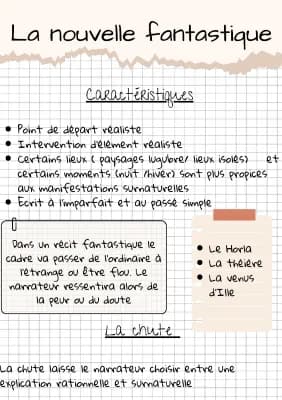 La nouvelle fantastique
Caractéristiques
Point de départ réaliste
Intervention d'élément réaliste
Certains lieux ( paysages lugubre/ lieux isolés) et
certains moments (nuit /hiver) sont plus propices
aux manifestations surnaturelles
Ecrit à l'imparfait et au passé simple
Dans un récit fantastique le
cadre va passer de l'ordinaire à
l'étrange ou être flou. Le
narrateur ressentira alors de
la peur ou du doute
Le Horla
La théière
La venus
d'Ille
La chute
La chute laisse le narrateur choisir entre une
explication rationnelle et surnaturelle